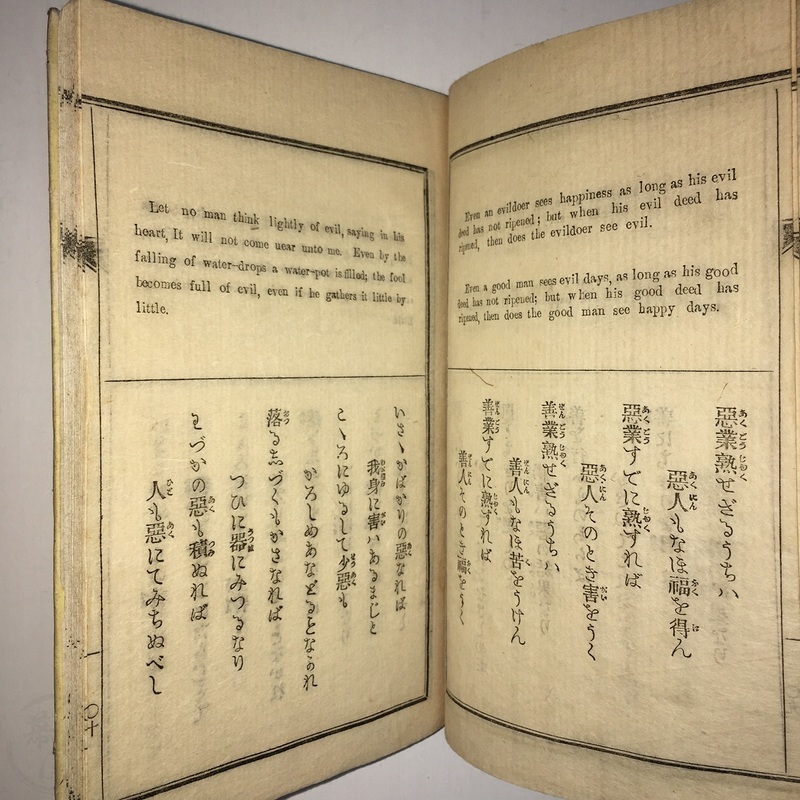 Even an evildoer sees happiness as long as his evil
deed has not ripened; but when his evil deed has
ripened, then does the evildoer see evil.
Even a good man sees evil days, as long as his good
deed has not ripened; but when his good deed has
ripened, then does the good man see happy days.
惡業熟せざるうちハ
惡人もなほ福を得ん
惡業すでに熟すれば
惡人そのとき害をうく
善業熟せざるうちハ
善人もなほ苦をうけん
善業すでに熟すれば
善人そのとき福をうく
Let no man think lightly of evil, saying in his
heart, It will not come near unto me. Even by the
falling of water-drops a water-pot is filled; the fool
becomes full of evil, even if he gathers it little by
little.
いさゝかばかりの惡なれば
我身に害ハあるまじと
こゝろにゆるして少惡も
かろしめあなどるとなかれ
落る志づくもかさなれば
つひに器にみつるなり
わづかの惡も積ぬれば
人も惡にてみちぬべし
十